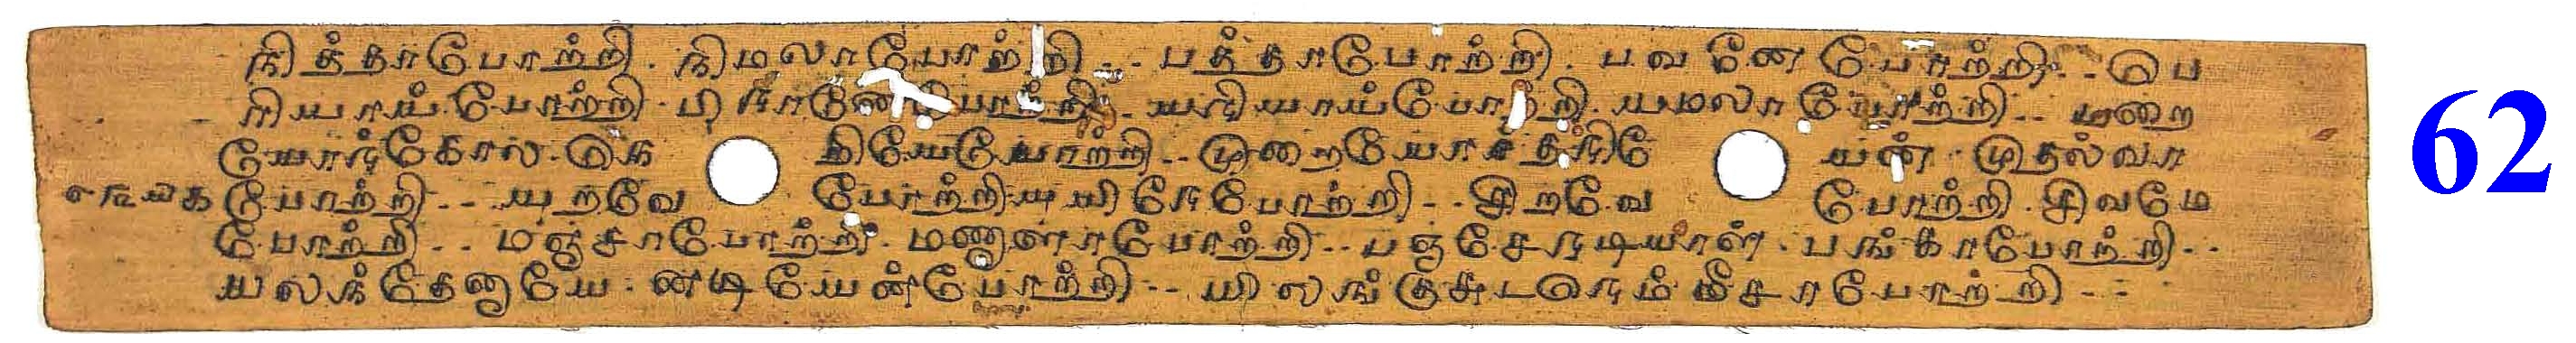 நித்தாபோற்றி. நிமலாபோற்றி-- பத்தாபோற்றி. பவனே போற்றி-- பெ
ரியாய்போற்றி. பிரானேபோற்றி-- யரியாய்போற்றி. யமலாபோற்றி-- மறை
யோர்கோல. தெக தியேபோற்றி-- முறையோ யன். முதல்வா
போற்றி-- யுறவே போற்றியுயிரேபோற்றி-- சிறவே போற்றி. சிவமே
போற்றி-- மஞ்சாபோற்றி. மணாளாபோற்றி-- பஞ்சேரடியாள். பங்காபோற்றி--
யலந்தேனாயே. னடியேன்போற்றி-- யிலங்குசுடரெம் மீசாபோற்றி--
62